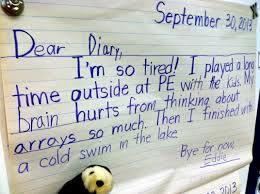 September 30, 2013
Dear Diary,
I'm so tired! I played a long
time outside at PE with the kids. My
brain hurts from thinking about
arrays so much. Then I finished with
a cold swim in the lake
Bye for now,
Eddie
2013